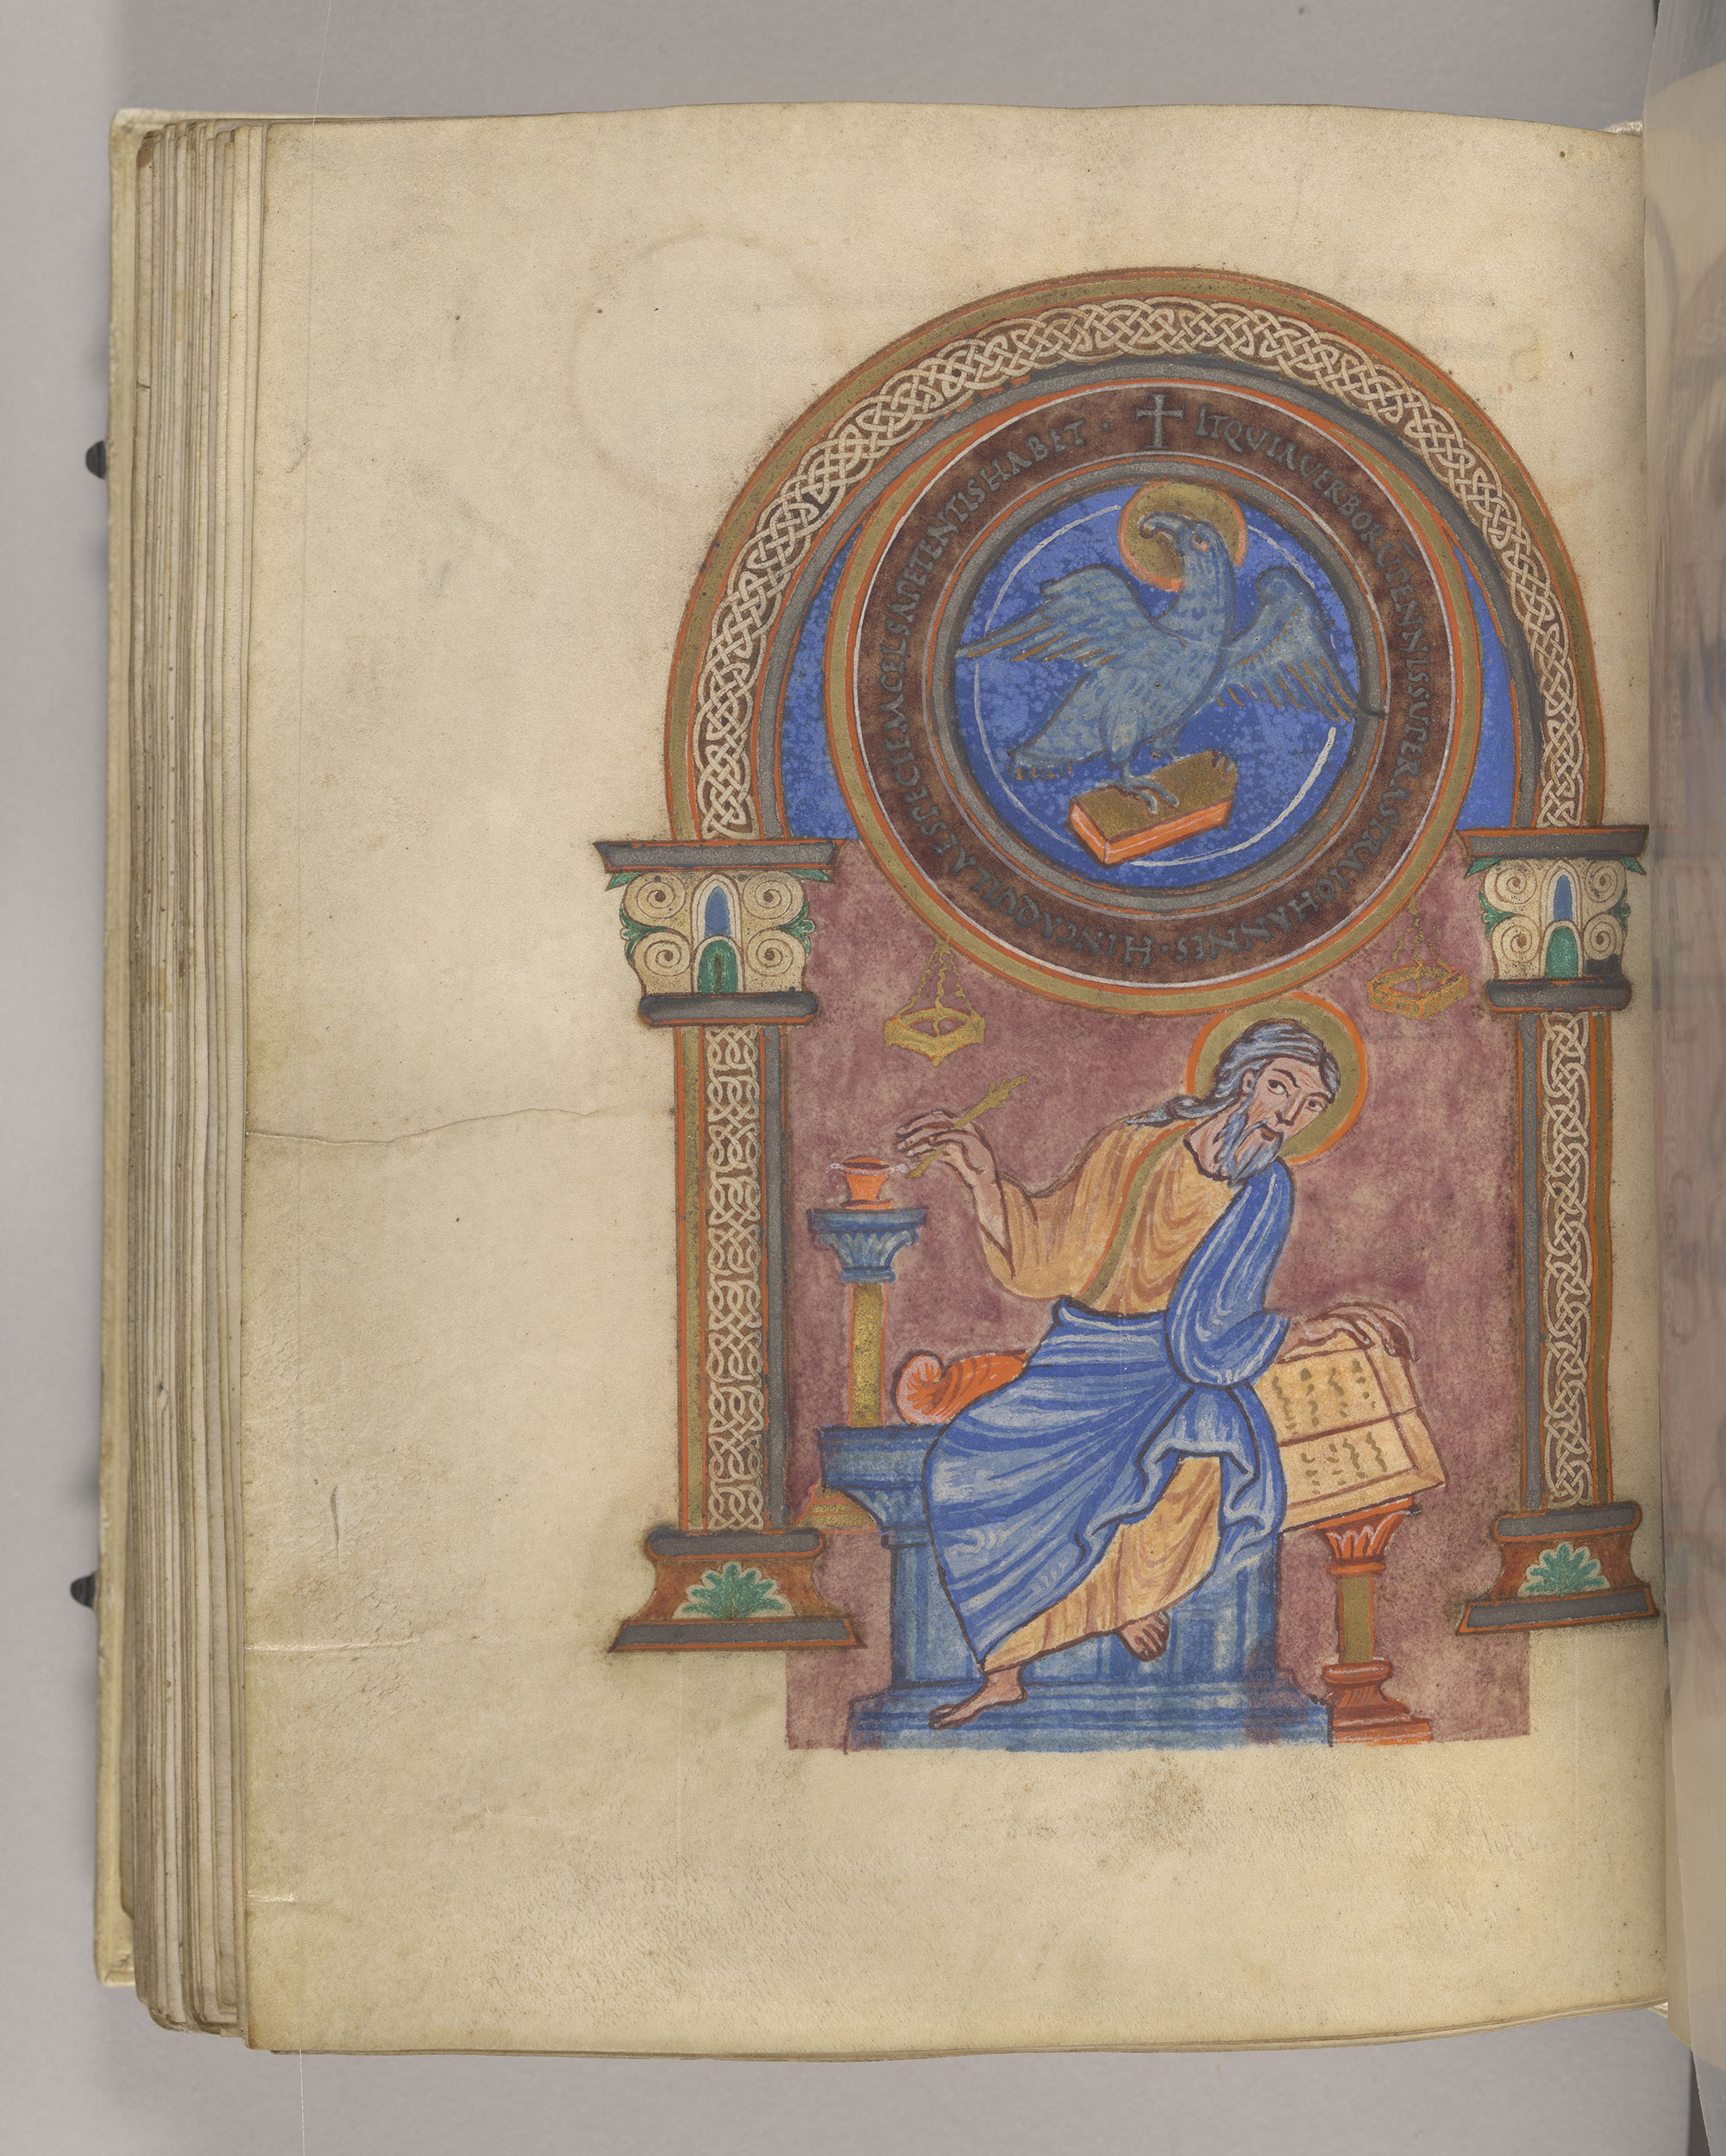 ✝ IT QUIA UERBORŪ PENNIS SUPER ASTRA IOHANNES · HINC AQUILAE SPECIEM CELSA PETENTIS HABET ·